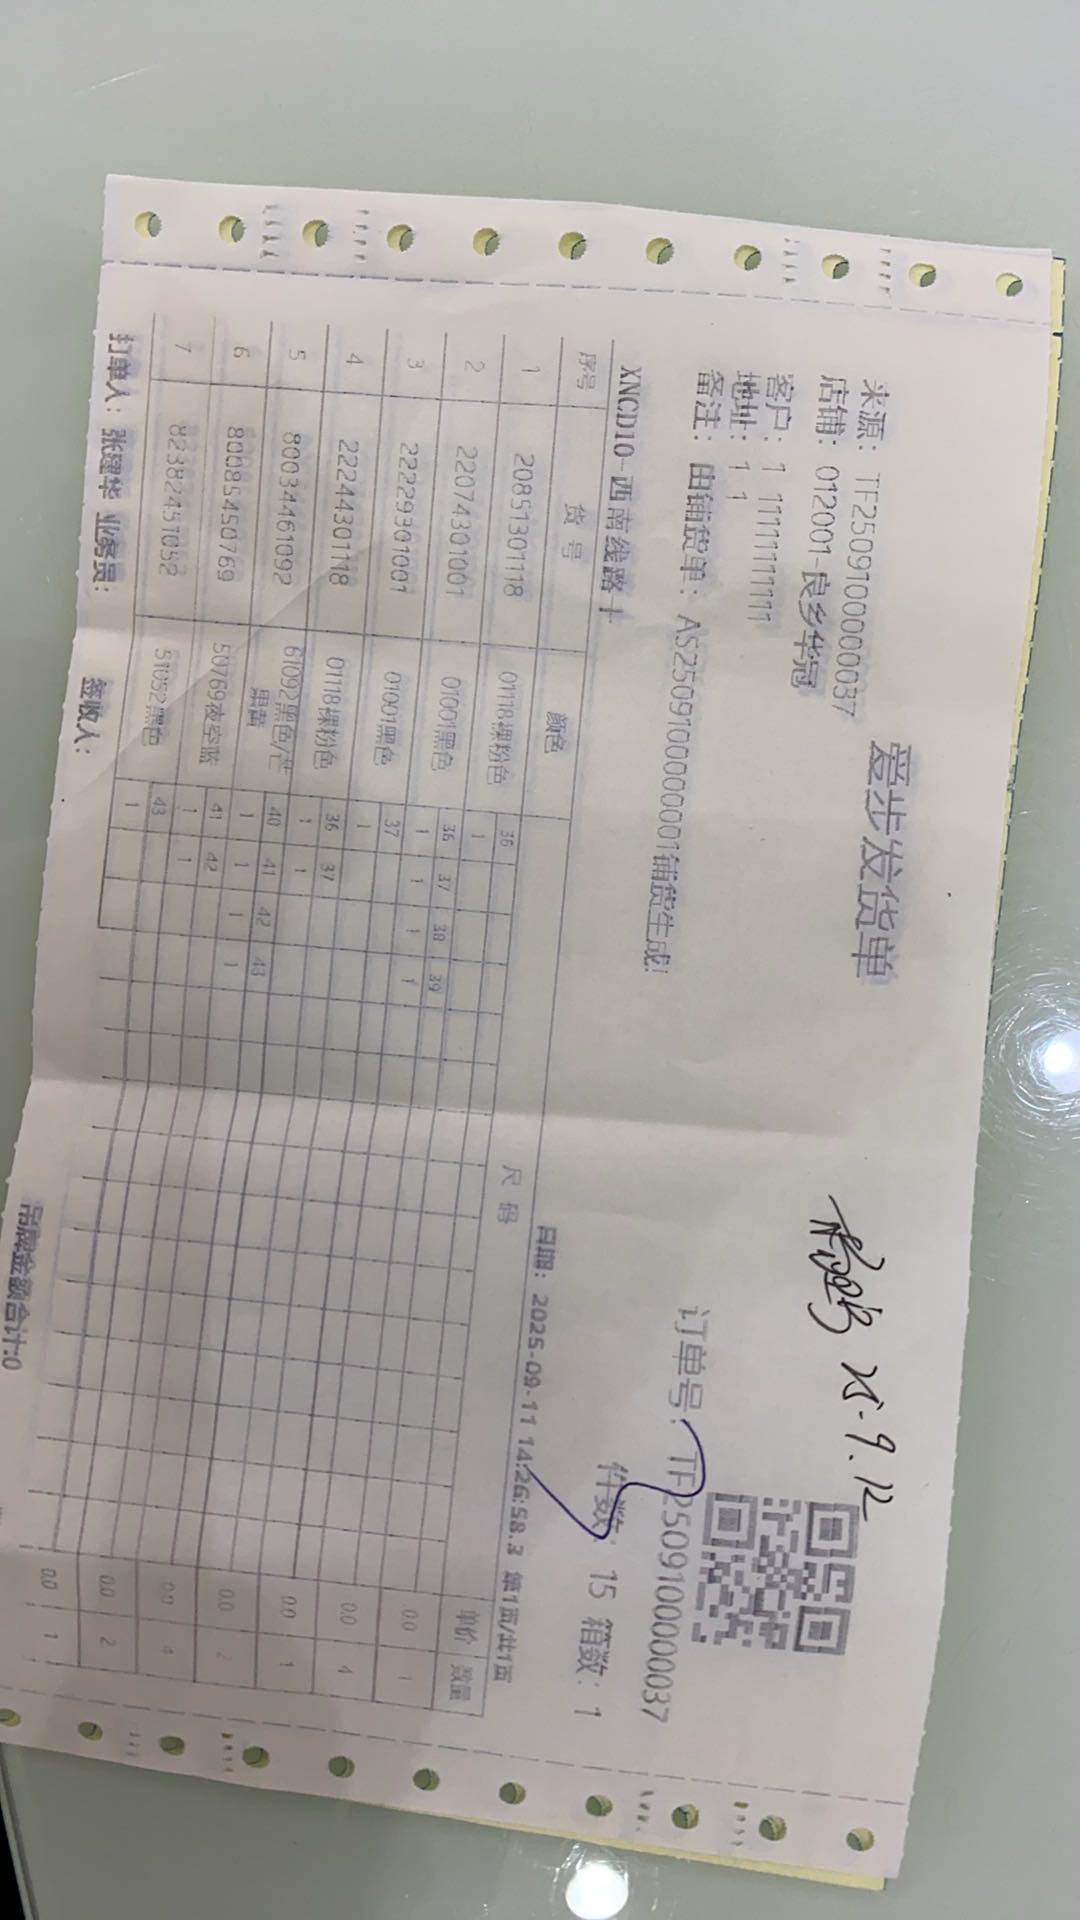 爱步发货单
25.9.12
来源：TF25091000000037
订单号：TF25091000000037
店铺：012001-良乡华冠
件数：15 箱数：1
客户：1 11111111111
地址：1 1
备注：由铺货单：AS25091000000001铺货生成!
日期：2025-09-11 14:26:58.3 第1页/共1页
XNCD10-西南线路十
序号 货号 颜色 尺码 单价 数量
36
1 20851301118 01118裸粉色 1 0.0 1
36 37 38 39
2 22074301001 01001黑色 1 1 1 1 0.0 4
37
3 22229301001 01001黑色 1 0.0 1
36 37
4 22244301118 01118裸粉色 1 1 0.0 2
40 41 42 43
5 80034461092 61092黑色/芒果黄 1 1 1 1 0.0 4
41 42
6 80085450769 50769夜空蓝 1 1 0.0 2
43
7 82382451052 51052黑色 1 0.0 1
打单人：张建华 业务员： 签收人： 吊牌金额合计:0